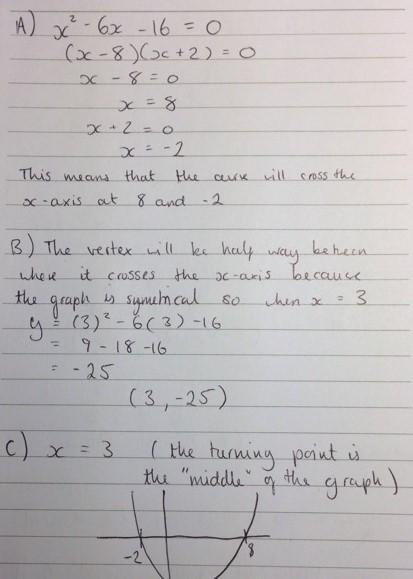 A) x² - 6x - 16 = 0
(x - 8)(x + 2) = 0
x - 8 = 0
x = 8
x + 2 = 0
x = -2
This means that the curve will cross the
x-axis at 8 and -2
B) The vertex will be half way between
where it crosses the x-axis because
the graph is symetrical so when x = 3
y = (3)² - 6(3) - 16
= 9 - 18 - 16
= -25
(3, -25)
C) x = 3 (the turning point is
the "middle" of the graph)
-2 8